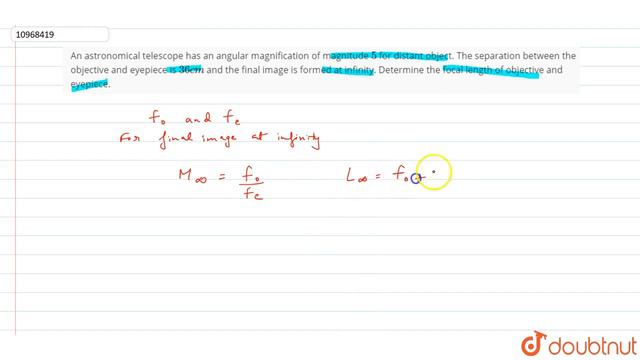 10968419
An astronomical telescope has an angular magnification of magnitude 5 for distant object. The separation between the
objective and eyepiece is 36cm and the final image is formed at infinity. Determine the focal length of objective and
eyepiece.
f₀ and fₑ
For final image at infinity
M∞ = f₀/fₑ L∞ = f₀ +
doubtnut